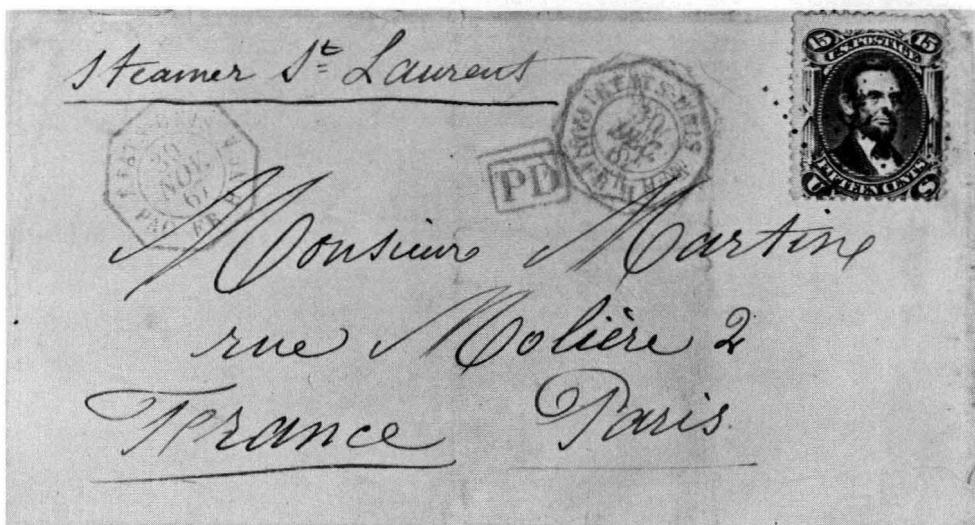 Steamer St Laurent
15 U.S. POSTAGE 15
FIFTEEN CENTS
U S
30
NOV.
67
PAQ. FR.
PD
Monsieur Martine
rue Molière 2
France Paris